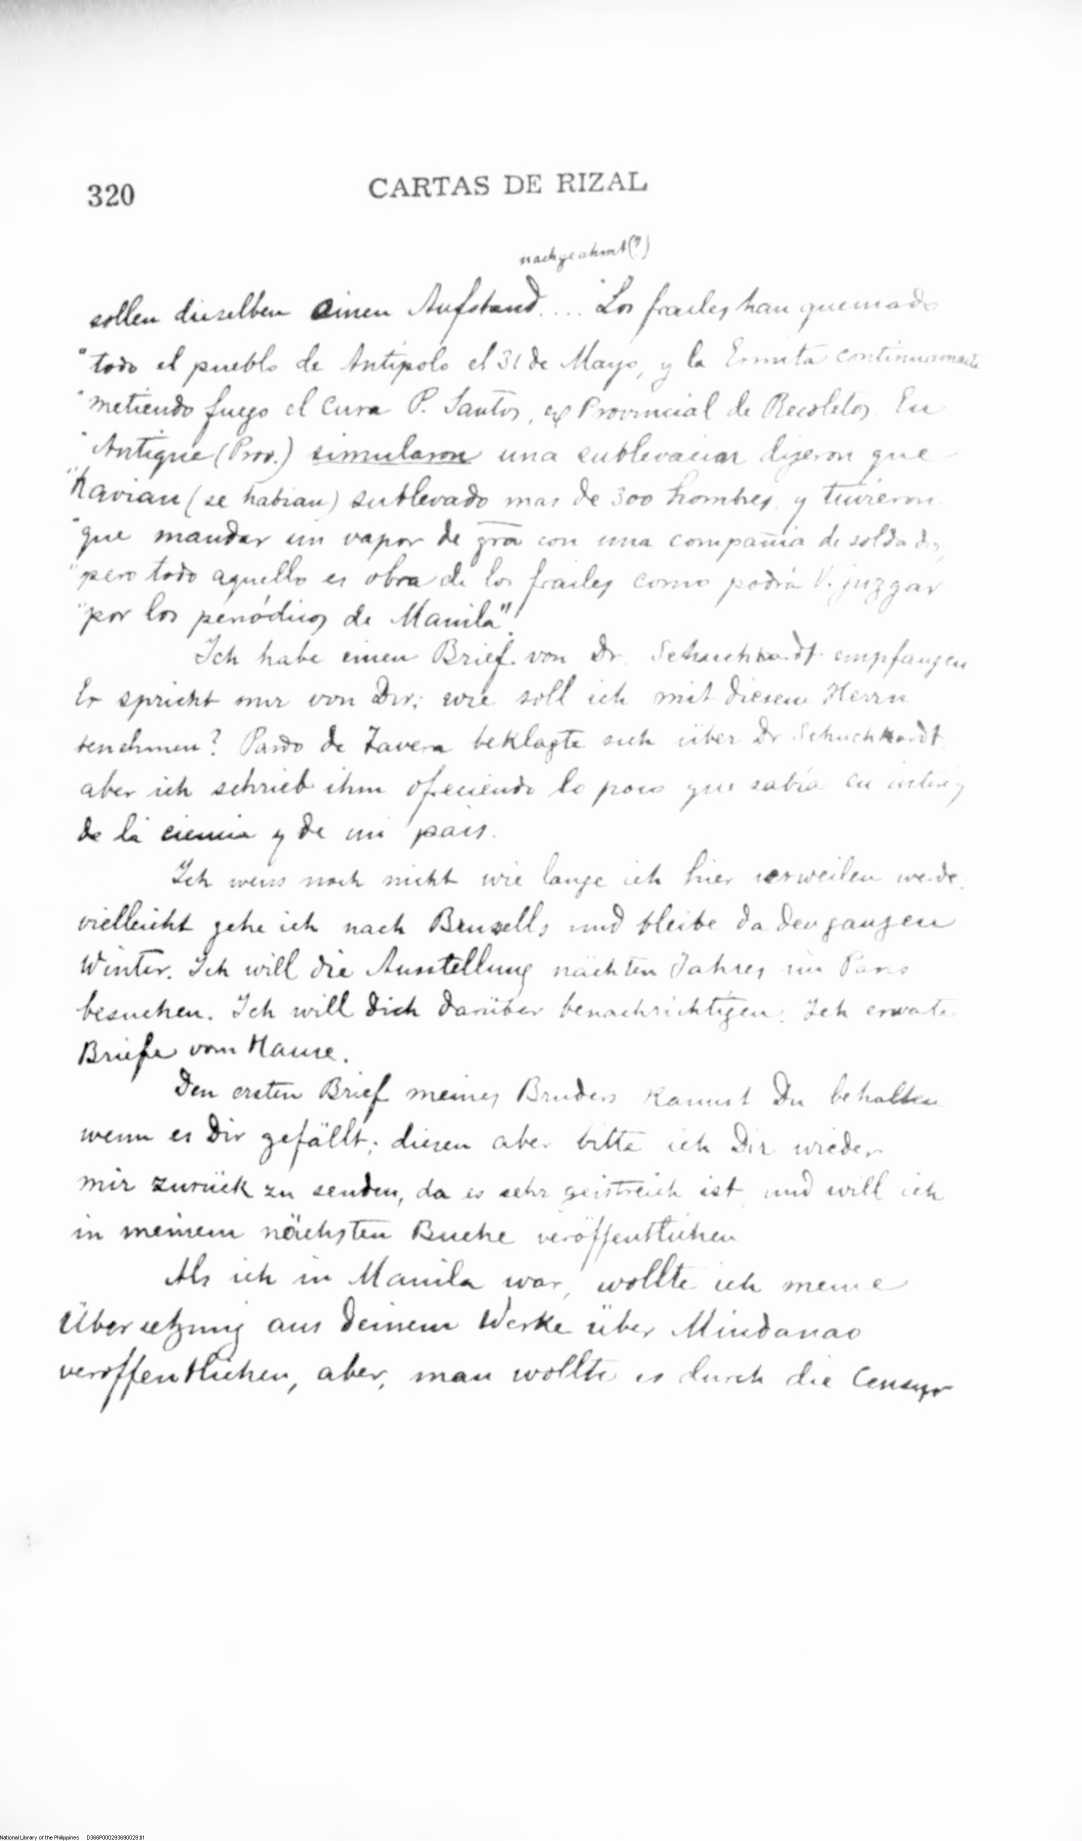 320
CARTAS DE RIZAL
nachgeahmt(?)
sollen dieselben einen Aufstand.... "Los frailes han quemado
"todo el pueblo de Antipolo el 31 de Mayo, y la Ermita continuamente
"metiendo fuego el Cura P. Santos, ex Provincial de Recoletos. En
"Antique (Prov.) simularon una sublevacion dijeron que
"havian (se habian) sublevado mas de 300 hombres y tuvieron
"que mandar un vapor de gra con una compañia de soldados,
"pero todo aquello es obra de los frailes como podrá V. juzgar
"por los periódicos de Manila".
Ich habe einen Brief von Dr. Schuchhardt empfangen
Er spricht mir von Dir; wie soll ich mit diesem Herrn
benehmen? Pardo de Tavera beklagte sich über Dr Schuchhardt
aber ich schrieb ihm ofreciendo lo poco que sabía en
de la ciencia y de mi pais.
Ich weiss noch nicht wie lange ich hier verweilen werde.
vielleicht gehe ich nach Bruxells und bleibe da den ganzen
Winter. Ich will die Ausstellung nächten Jahres in Paris
besuchen. Ich will Dich darüber benachrichtigen. Ich erwarte
Briefe vom Hause.
Den ersten Brief meines Bruders kannst Du behalten
wenn es Dir gefällt; diesen aber bitte ich Dir wieder
mir zurück zu senden, da es sehr geistreich ist, und will ich
in meinem nächsten Buche veröffentlichen
Als ich in Manila war, wollte ich meine
Übersetzung aus Deinem Werke über Mindanao
veröffentlichen, aber, man wollte es durch die Censur
National Library of the Philippines